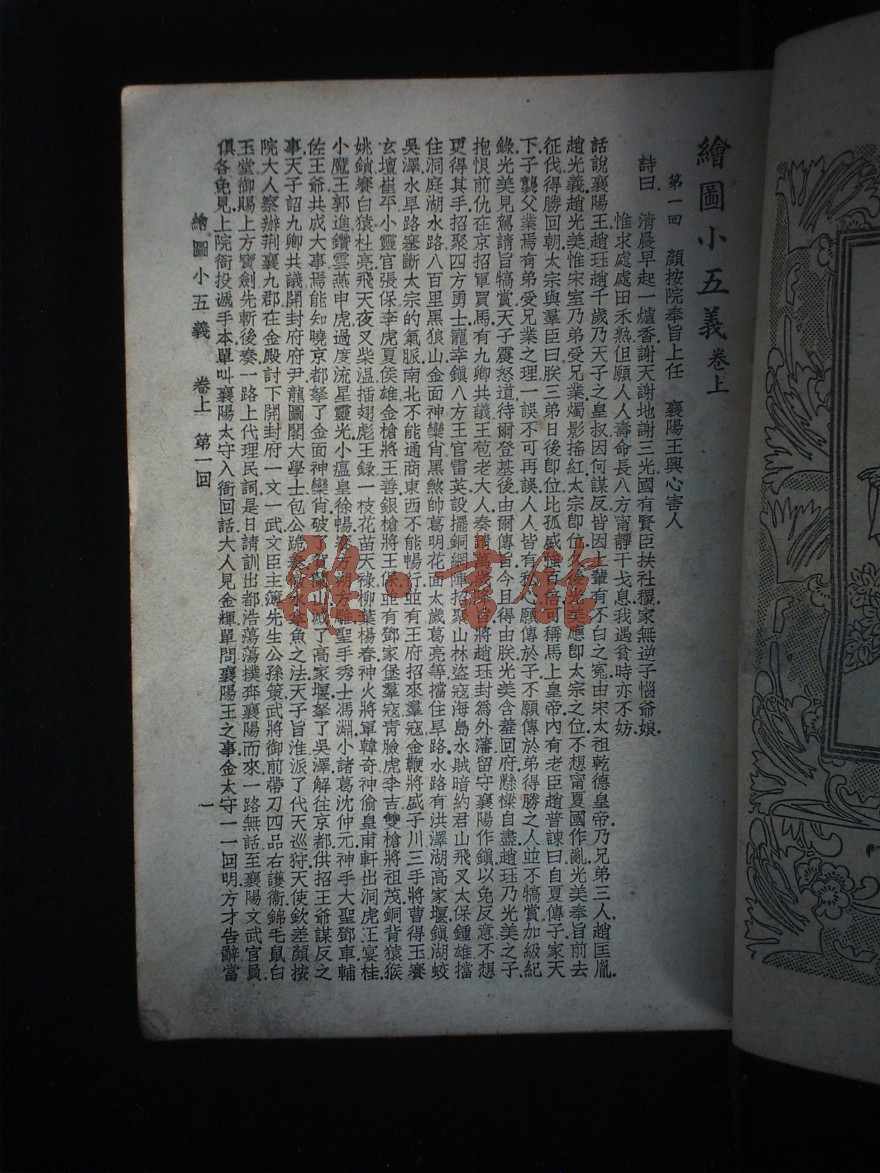 繪圖小五義 卷上
第一回 顏按院奉旨上任 襄陽王興心害人
詩曰 清晨早起一爐香謝天謝地謝三光國有賢臣扶社稷家無逆子惱爺娘
惟求處處田禾熟但願人人壽命長八方甯靜干戈息我遇貧時亦不妨
話說襄陽王趙珏趙千歲乃天子之皇叔因何謀反皆因上輩有不白之冤由宋太祖乾德皇帝乃兄弟三人趙匡胤
趙光義趙光美惟宋室乃弟受兄業燭影搖紅太宗卽位光美應卽太宗之位不想甯夏國作亂光美奉旨前去
征伐得勝回朝太宗與羣臣曰朕三弟日後卽位比孤盛強百倍可稱馬上皇帝內有老臣趙普諫曰自夏傳子家天
下子襲父業焉有弟受兄業之理一誤不可再誤人人皆有私願傳於子不願傳於弟得勝之人並不犒賞加級紀
錄光美見駕請旨犒賞天子震怒道待爾登基後由爾傳旨今且得由朕光美含羞回府懸樑自盡趙珏乃光美之子
抱恨前仇在京招軍買馬有九卿共議王苞老大人奏請萬歲降旨將趙珏封爲外藩留守襄陽作鎮以免反意不想
更得其手招聚四方勇士寵幸鎮八方王官雷英設擺銅網陣招聚山林盜寇海島水賊暗約君山飛叉太保鍾雄擋
住洞庭湖水路八百里黑狼山金面神欒肖黑煞帥葛明花面太歲葛亮等擋住旱路水路有洪澤湖高家堰鎮湖蛟
吳澤水旱路塞斷太宗的氣脈南北不能通商東西不能暢行並有王府招來羣寇金鞭將盛子川三手將曹得玉賽
玄壇崔平小靈官張保李虎夏侯雄金槍將王善銀槍將王保並有鄧家堡羣寇靑臉虎李吉雙槍將祖茂銅背猿猴
姚鎖賽白猿杜亮飛天夜叉柴溫插翅彪王錄一枝花苗天祿柳葉楊春神火將軍韓奇神偷皇甫軒出洞虎王宴桂
小魔王郭進鑽雲燕申虎過度流星靈光小瘟皇徐暢
聖手秀士馮淵小諸葛沈仲元神手大聖鄧車輔
佐王爺共成大事焉能知曉京都拏了金面神欒肖破了黑狼山滅了高家堰拏了吳澤解往京都供招王爺謀反之
事天子詔九卿共議開封府府尹龍圖閣大學士包公跪奏
水拿魚之法天子旨准派了代天巡狩天使欽差顏按
院大人察辦荆襄九郡在金殿討下開封府一文一武文臣主簿先生公孫策武將御前帶刀四品右護衞錦毛鼠白
玉堂御賜上方寶劍先斬後奏一路上代理民詞是日請訓出都浩蕩蕩撲奔襄陽而來一路無話至襄陽文武官員
俱各免見上院衙投遞手本單叫襄陽太守入衙回話大人見金輝單問襄陽王之事金太守一一回明方才告辭當
繪圖小五義 卷上 第一回 一
雅書館